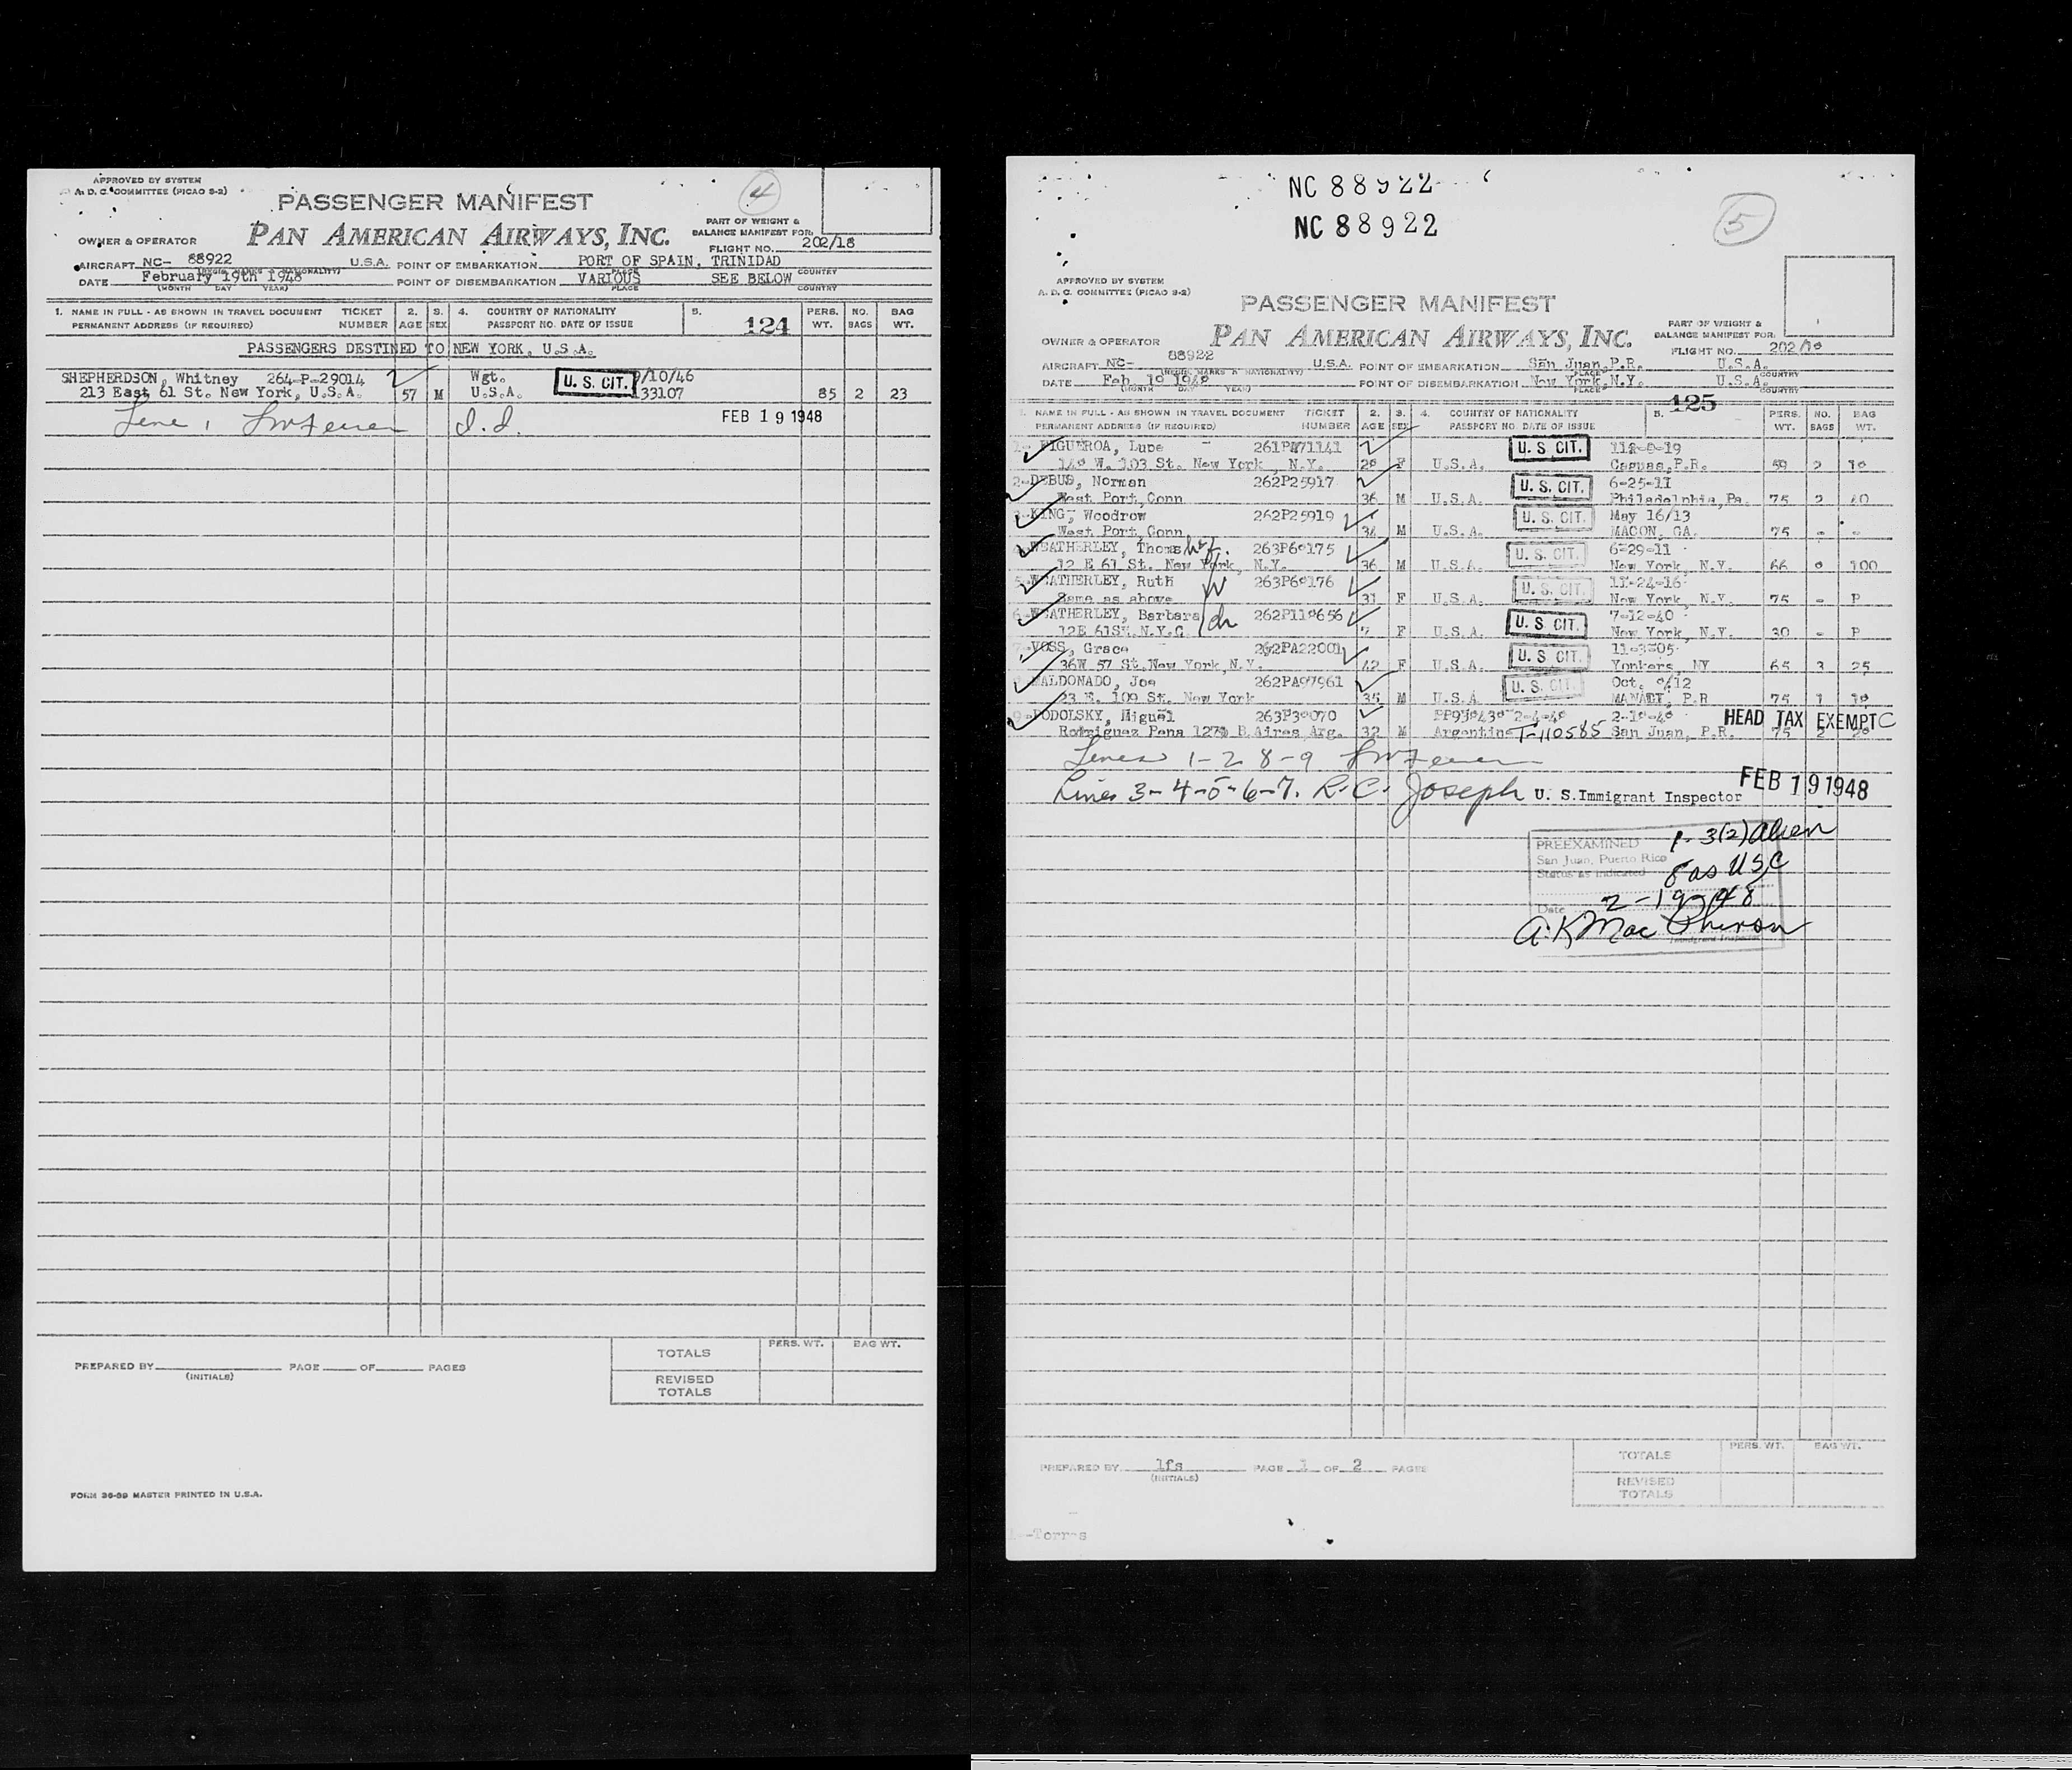 APPROVED BY SYSTEM
A. D. C. COMMITTEE (PICAO S-2)
4
PASSENGER MANIFEST
PAN AMERICAN AIRWAYS, INC.
PART OF WEIGHT &
BALANCE MANIFEST FOR:
OWNER & OPERATOR
FLIGHT NO. 202/18
AIRCRAFT NC- 88922 U.S.A. POINT OF EMBARKATION PORT OF SPAIN, TRINIDAD
(REGIS. MARKS & NATIONALITY) PLACE COUNTRY
DATE February 19th 1948 POINT OF DISEMBARKATION VARIOUS SEE BELOW
(MONTH DAY YEAR) PLACE COUNTRY
1. NAME IN FULL - AS SHOWN IN TRAVEL DOCUMENT TICKET 2. 3. 4. COUNTRY OF NATIONALITY 5. 124 PERS. NO. BAG
PERMANENT ADDRESS (IF REQUIRED) NUMBER AGE SEX PASSPORT NO. DATE OF ISSUE WT. BAGS WT.
PASSENGERS DESTINED TO NEW YORK, U.S.A.
SHEPHERDSON, Whitney 264-P-29014 Wgt. U. S. CIT. 9/10/46
213 East 61 St. New York, U.S.A. 57 M U.S.A. 133107 85 2 23
FEB 19 1948
PREPARED BY PAGE OF PAGES
(INITIALS)
PERS. WT. BAG WT.
TOTALS
REVISED
TOTALS
FORM 36-89 MASTER PRINTED IN U.S.A.
NC 88922
NC 88922
5
APPROVED BY SYSTEM
A. D. C. COMMITTEE (PICAO S-2)
PASSENGER MANIFEST
PAN AMERICAN AIRWAYS, INC.
PART OF WEIGHT &
BALANCE MANIFEST FOR:
OWNER & OPERATOR
FLIGHT NO. 202/18
AIRCRAFT NC- 88922 U.S.A. POINT OF EMBARKATION San Juan, P.R. U.S.A.
(REGIS. MARKS & NATIONALITY) PLACE COUNTRY
DATE Feb 19 1948 POINT OF DISEMBARKATION New York, N.Y. U.S.A.
(MONTH DAY YEAR) PLACE COUNTRY
1. NAME IN FULL - AS SHOWN IN TRAVEL DOCUMENT TICKET 2. 3. 4. COUNTRY OF NATIONALITY 5. 125 PERS. NO. BAG
PERMANENT ADDRESS (IF REQUIRED) NUMBER AGE SEX PASSPORT NO. DATE OF ISSUE WT. BAGS WT.
FIGUEROA, Lupe U. S. CIT.
W. 103 St. New York, N.Y. 28 F U.S.A. Caguas, P.R. 59 2
2-DEBUS, Norman 262P25917 U. S. CIT. 6-25-11
West Port, Conn 36 M U.S.A. Philadelphia, Pa. 75 2 40
KING, Woodrow 262P25919 U. S. CIT. May 16/13
West Port, Conn 34 M U.S.A. MACON, GA. 75 - -
WEATHERLEY, Thomas 263P68175 U. S. CIT. 6-29-11
12 E 61 St. New York, N.Y. 36 M U.S.A. New York, N.Y. 66 100
5-WEATHERLEY, Ruth 263P68176 U. S. CIT. 11-24-16
Same as above 31 F U.S.A. New York, N.Y. 75 - P
6-WEATHERLEY, Barbara 262P118656 U. S. CIT. 7-12-40
12E 61St. N.Y.C 7 F U.S.A. New York, N.Y. 30 - P
VOSS, Grace 262PA22001 U. S. CIT. 11-3-05
36W 57 St. New York, N.Y. 42 F U.S.A. Yonkers, NY 65 3 25
MALDONADO, Joe 262PA97961 U. S. CIT. Oct.
23 E. 109 St. New York 35 M U.S.A. MANATI, P.R 75 1
9-PODOLSKY, Miguel 263P38070 HEAD TAX EXEMPT C
Rodriguez Pena B.Aires Arg. 32 M Argentine T-110585 San Juan, P.R. 75 2
Lines 1-2 8-9
Lines 3-4-5-6-7. R.C. Joseph U. S. Immigrant Inspector FEB 19 1948
PREEXAMINED 1-3(2) Alien
San Juan, Puerto Rico
Status as indicated 8 as USC
Date 2-19-48
A.K. MacPherson
Immigrant Inspector
PREPARED BY lfs PAGE 1 OF 2 PAGES
(INITIALS)
PERS. WT. BAG WT.
TOTALS
REVISED
TOTALS
-Torres